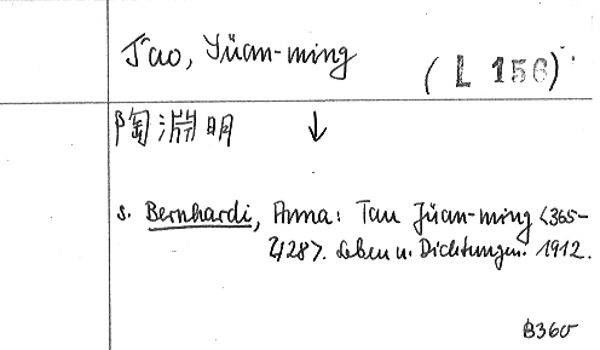 T'ao, Yüan-ming (L 156)
陶淵明 ↓
s. Bernhardi, Anna: Tau Jüan-ming <365-
428>. Leben u. Dichtungen. 1912.
B360